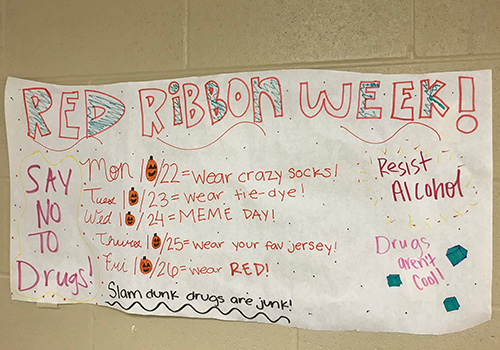 RED RIBBON WEEK!
SAY
NO
TO
Drugs!
Mon 10/22 = wear crazy socks!
Tues 10/23 = wear tie-dye!
Wed 10/24 = MEME DAY!
Thurs 10/25 = wear your fav jersey!
Fri 10/26 = wear RED!
Slam dunk drugs are junk!
Resist
Alcohol
Drugs
aren't
Cool!